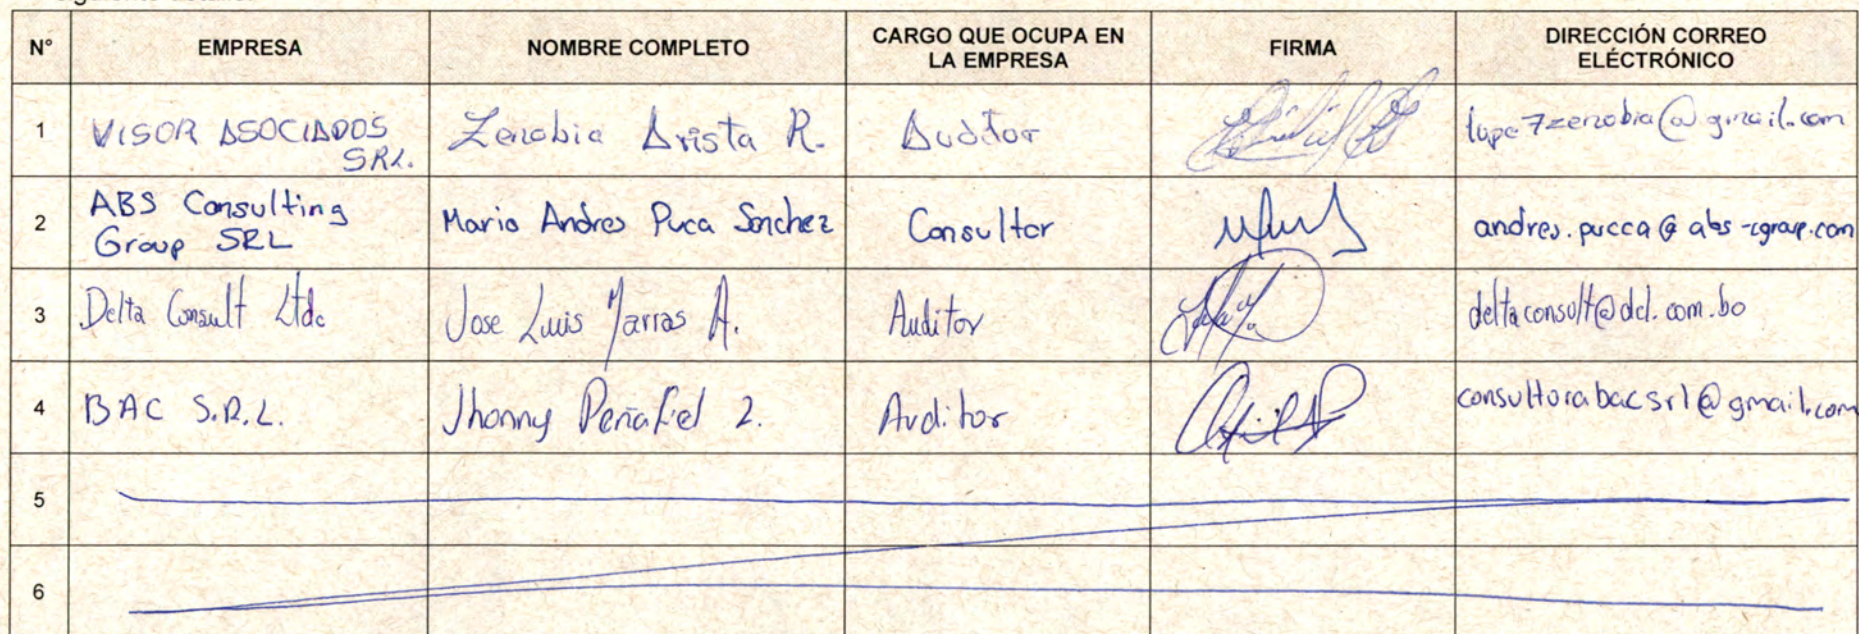 N° EMPRESA NOMBRE COMPLETO CARGO QUE OCUPA EN LA EMPRESA FIRMA DIRECCIÓN CORREO ELÉCTRÓNICO
1 VISOR ASOCIADOS SRL. Zenobia Arista R. Auditor lupe7zenobia@gmail.com
2 ABS Consulting Group SRL Mario Andres Puca Sanchez Consultor andres.pucca@abs-cgroup.com
3 Delta Consult Ltda Jose Luis Yarras A. Auditor deltaconsult@dcl.com.bo
4 BAC S.R.L. Jhonny Peñafiel Z. Auditor consultorabacsrl@gmail.com
5
6